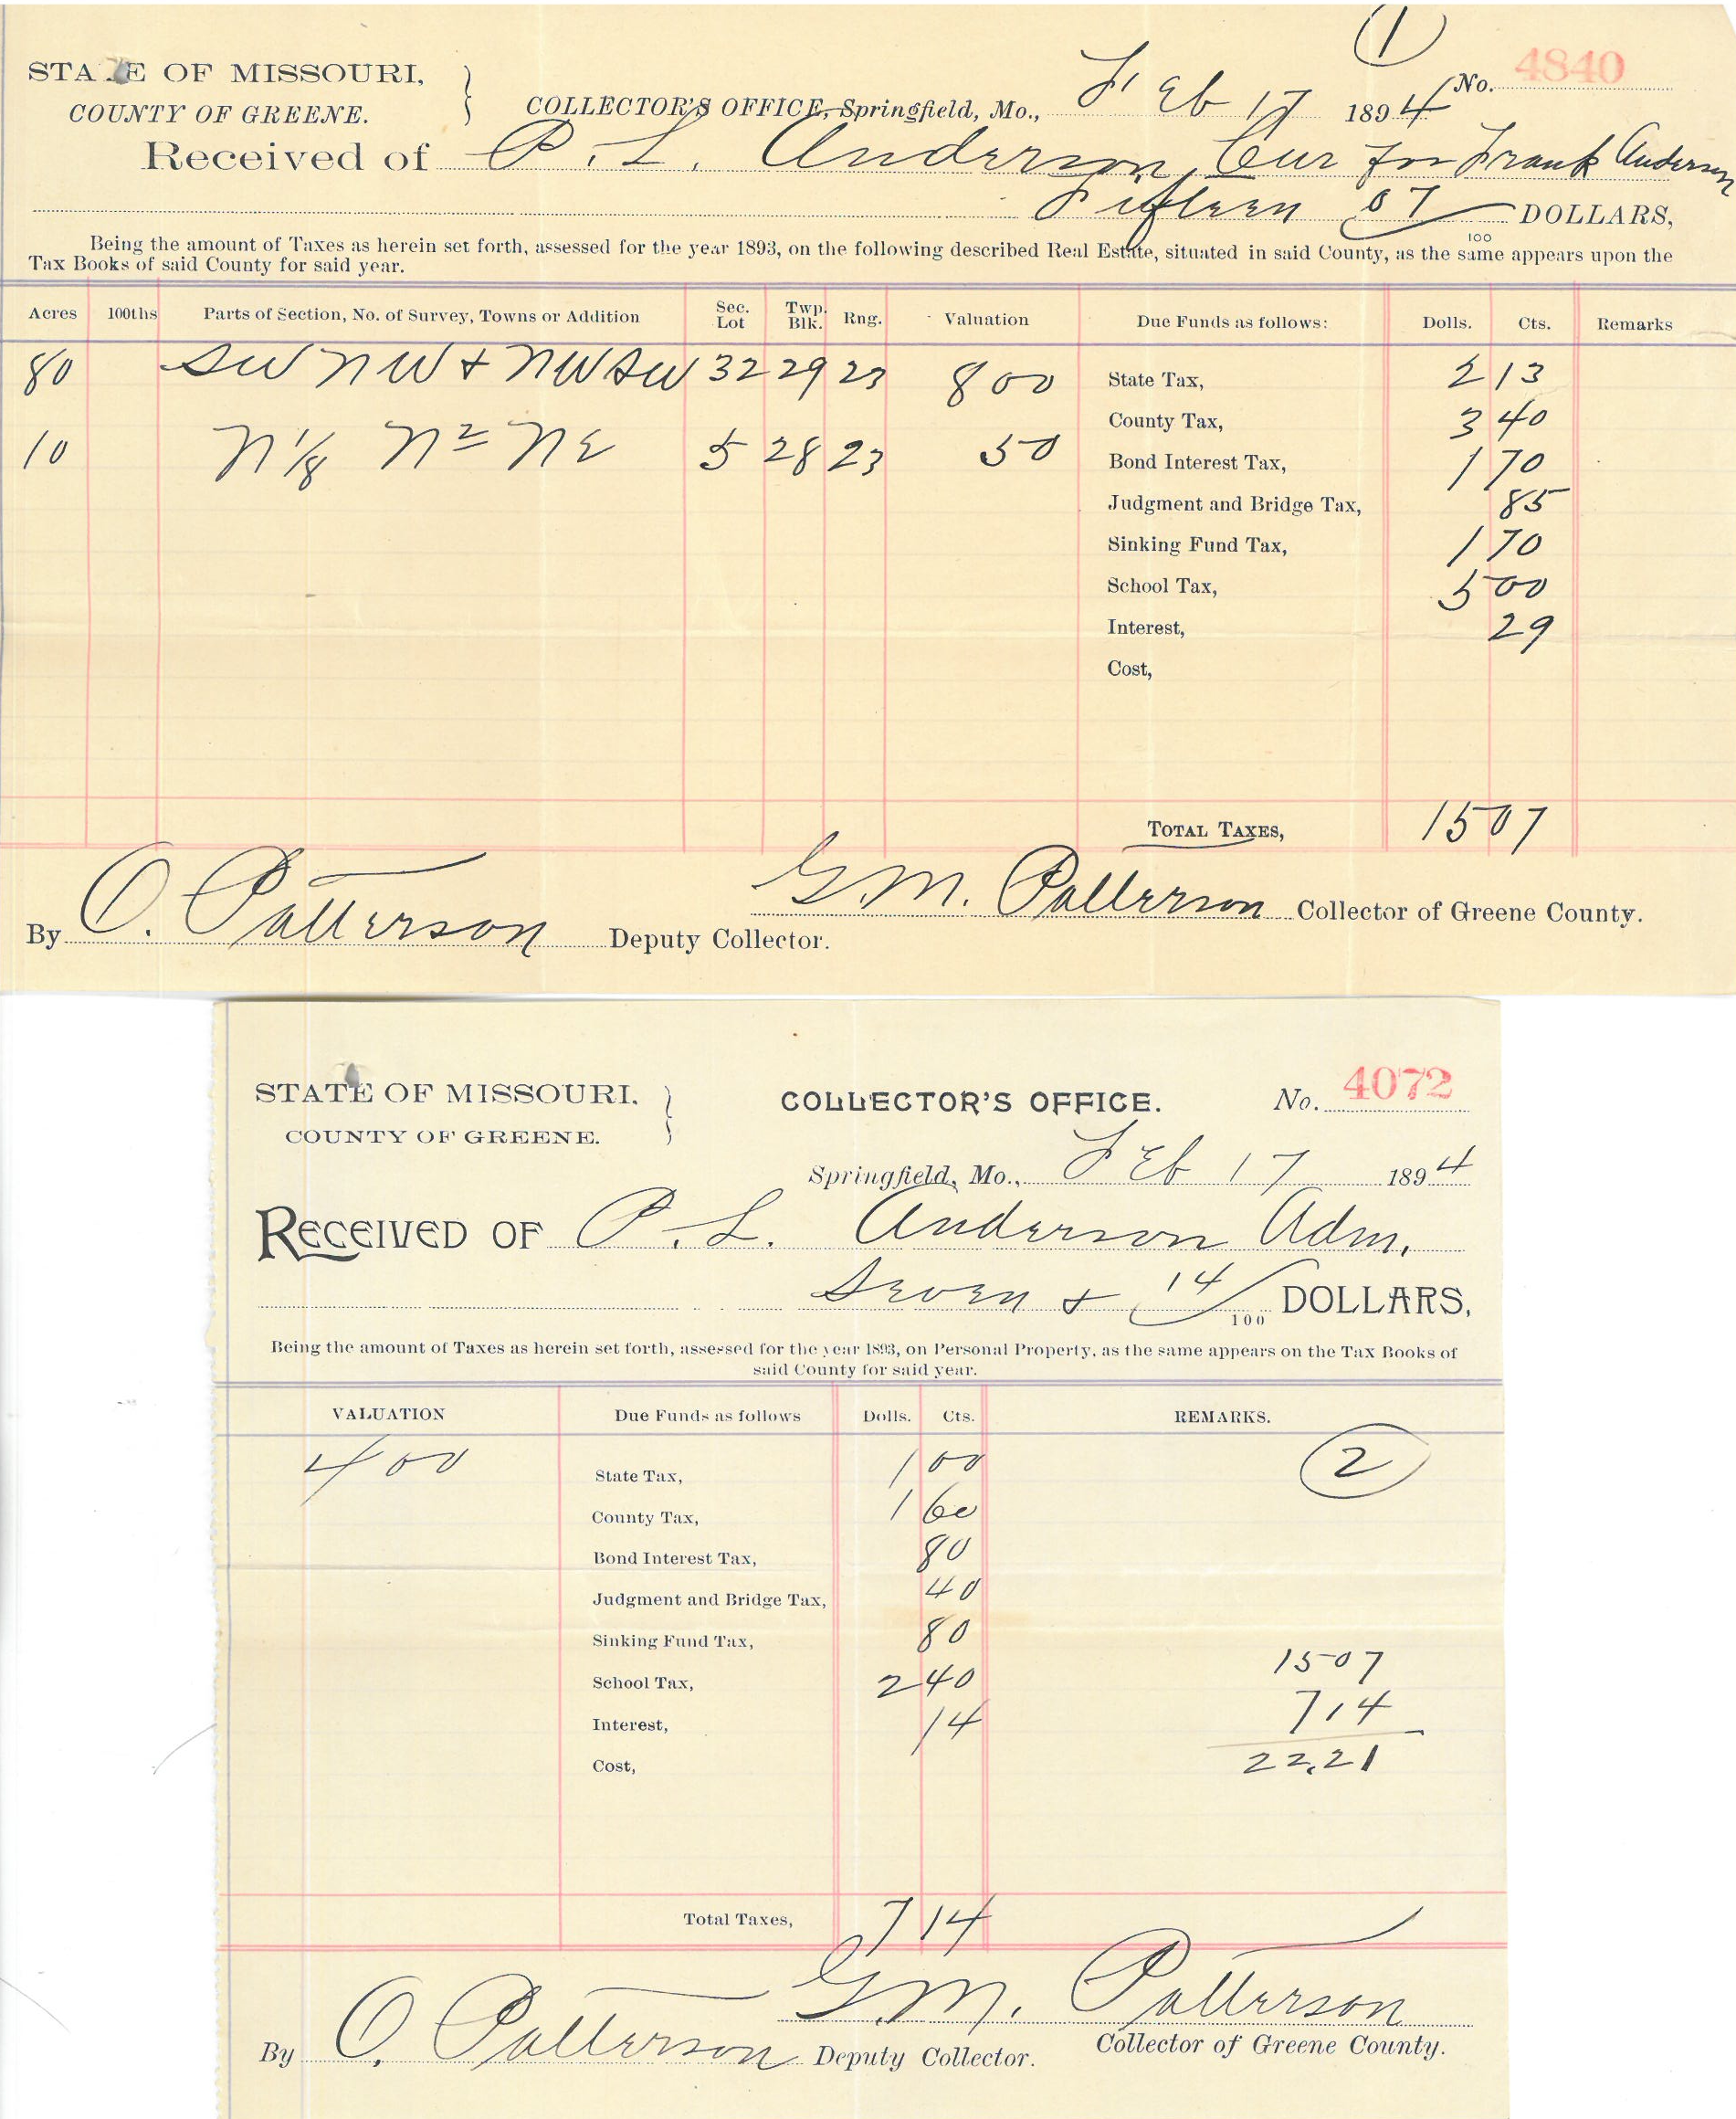 1
STATE OF MISSOURI, No. 4840
COUNTY OF GREENE. COLLECTOR'S OFFICE, Springfield, Mo., Feb 17 1894
Received of P. L. Anderson Cur for Frank Anderson
Fifteen 07/100 DOLLARS,
Being the amount of Taxes as herein set forth, assessed for the year 1893, on the following described Real Estate, situated in said County, as the same appears upon the
Tax Books of said County for said year.
Acres 100ths Parts of Section, No. of Survey, Towns or Addition Sec. Lot Twp. Blk. Rng. Valuation Due Funds as follows: Dolls. Cts. Remarks
80 SW NW & NW SW 32 29 23 800 State Tax, 2 13
County Tax, 3 40
10 N 1/8 N 2 NE 5 28 23 50 Bond Interest Tax, 1 70
Judgment and Bridge Tax, 85
Sinking Fund Tax, 1 70
School Tax, 5 00
Interest, 29
Cost,
TOTAL TAXES, 15 07
G. M. Patterson Collector of Greene County.
By O. Patterson Deputy Collector.
STATE OF MISSOURI, COLLECTOR'S OFFICE. No. 4072
COUNTY OF GREENE.
Springfield, Mo., Feb 17 1894
RECEIVED OF P. L. Anderson Adm.
Seven & 14/100 DOLLARS,
Being the amount of Taxes as herein set forth, assessed for the year 1893, on Personal Property, as the same appears on the Tax Books of
said County for said year.
VALUATION Due Funds as follows Dolls. Cts. REMARKS.
400 State Tax, 1 00 2
County Tax, 1 60
Bond Interest Tax, 80
Judgment and Bridge Tax, 40
Sinking Fund Tax, 80
1507
School Tax, 2 40
714
Interest, 14
22.21
Cost,
Total Taxes, 7 14
G. M. Patterson
By O. Patterson Deputy Collector. Collector of Greene County.